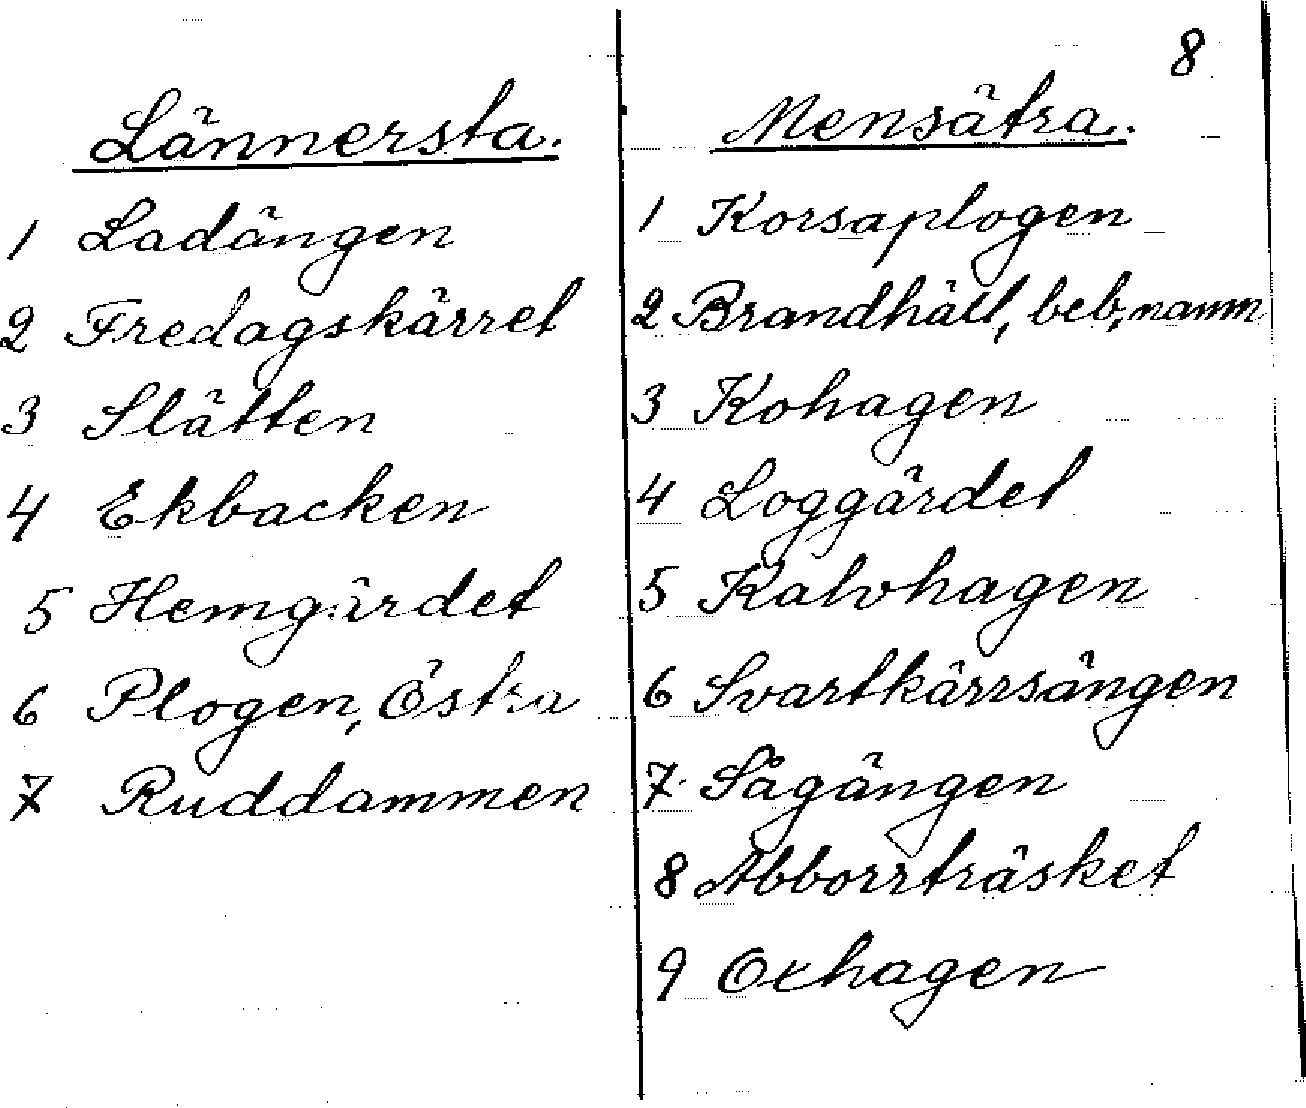 8
Lännersta.
1 Ladängen
2 Fredagskärret
3 Slätten
4 Ekbacken
5 Hemgärdet
6 Plogen, Östra
7 Ruddammen
Mensätra.
1 Korsaplogen
2 Brandhäll, beb. namn
3 Kohagen
4 Loggärdet
5 Kalvhagen
6 Svartkärrsängen
7 Sågängen
8 Abborrträsket
9 Oxhagen